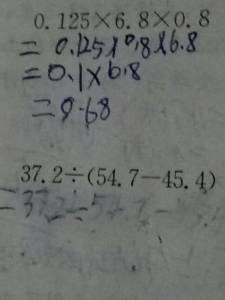 0.125×6.8×0.8
= 0.125×0.8×6.8
= 0.1×6.8
= 0.68
37.2÷(54.7−45.4)
= 37.2÷54.7 −